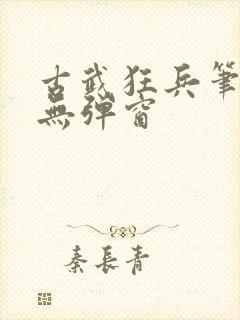 古武狂兵筆
無彈窗
秦長青